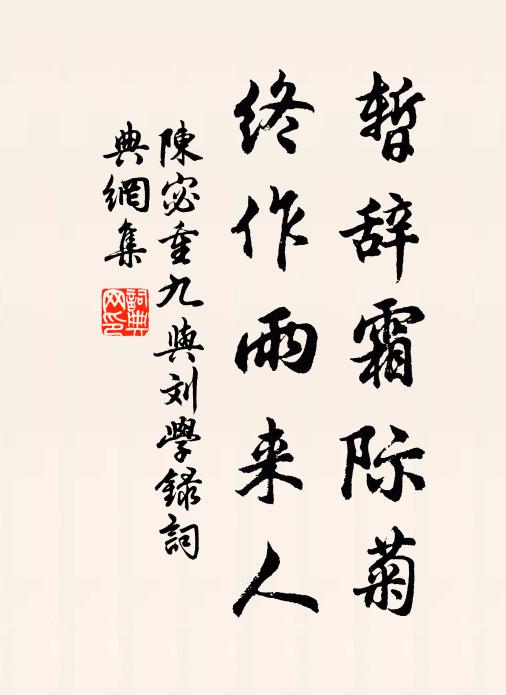 暂辞霜际菊
终作雨来人
陳宓重九與刘學録詞
典網集
詞典網印